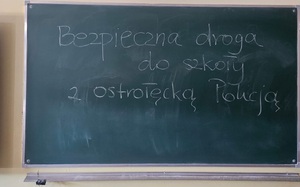 Bezpieczna droga
do szkoły
z ostrołęcką Policją